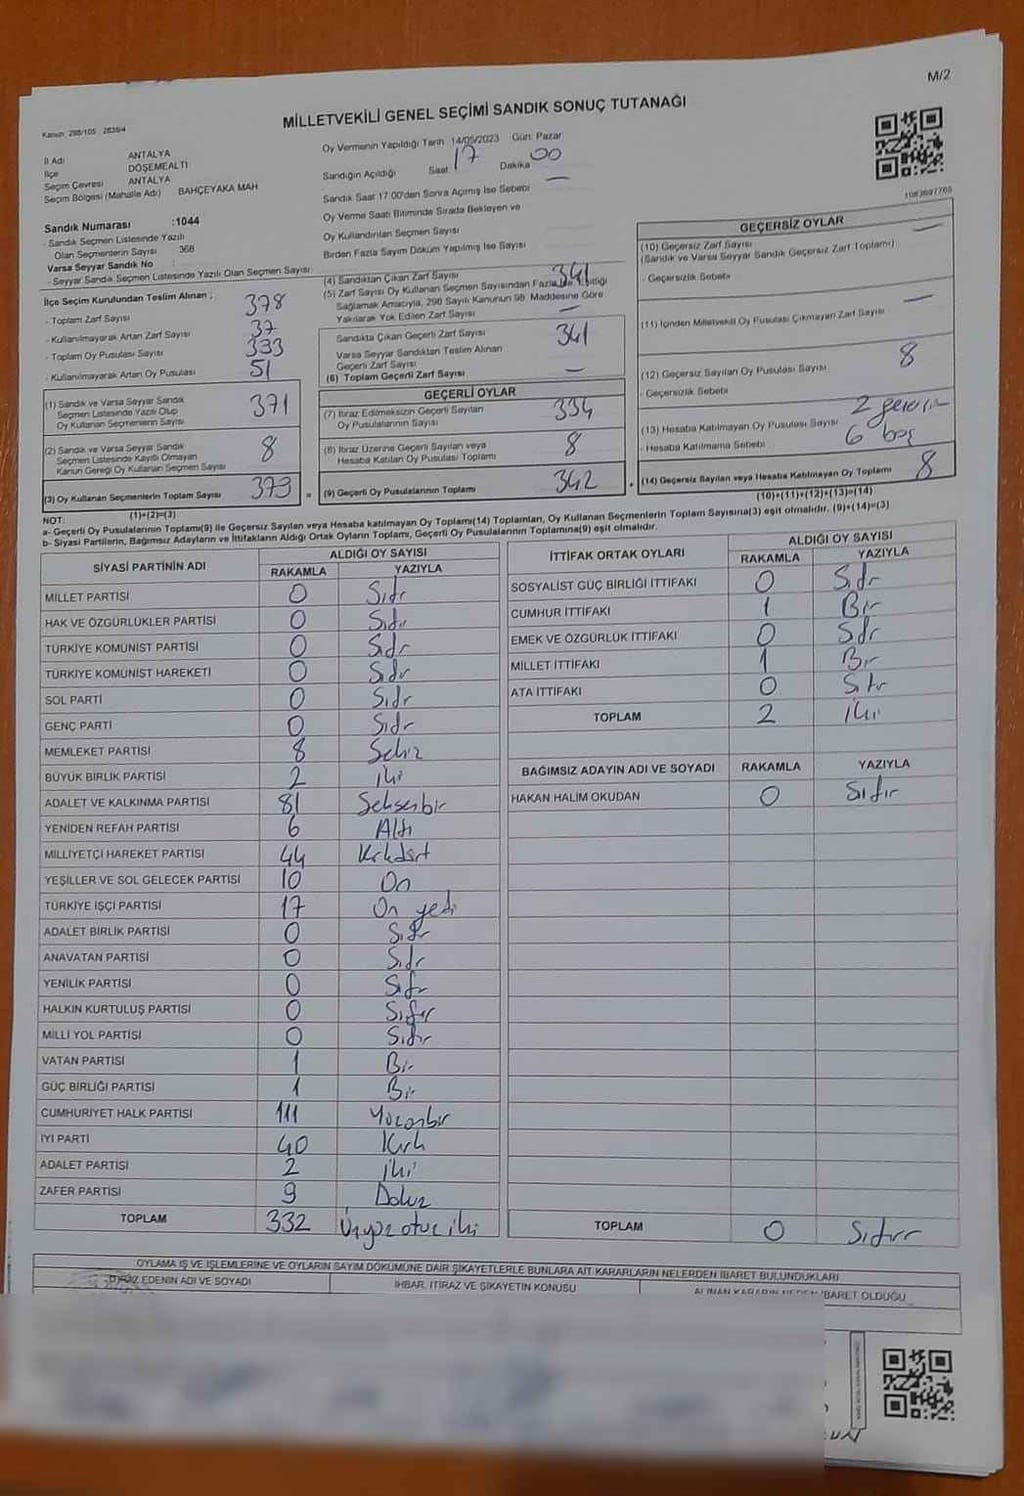 M/2
Kanun: 298/105 2839/4
MİLLETVEKİLİ GENEL SEÇİMİ SANDIK SONUÇ TUTANAĞI
İl Adı ANTALYA
İlçe DÖŞEMEALTI
Seçim Çevresi ANTALYA
Seçim Bölgesi (Mahalle Adı) BAHÇEYAKA MAH
Sandık Numarası :1044
- Sandık Seçmen Listesinde Yazılı
Olan Seçmenlerin Sayısı 368
Varsa Seyyar Sandık No :
- Seyyar Sandık Seçmen Listesinde Yazılı Olan Seçmen Sayısı:
İlçe Seçim Kurulundan Teslim Alınan ;
- Toplam Zarf Sayısı 378
- Kullanılmayarak Artan Zarf Sayısı 37
- Toplam Oy Pusulası Sayısı 393
- Kullanılmayarak Artan Oy Pusulası 51
(1) Sandık ve Varsa Seyyar Sandık
Seçmen Listesinde Yazılı Olup
Oy Kullanan Seçmenlerin Sayısı 371
(2) Sandık ve Varsa Seyyar Sandık
Seçmen Listesinde Kayıtlı Olmayan
Kanun Gereği Oy Kullanan Seçmen Sayısı 8
(3) Oy Kullanan Seçmenlerin Toplam Sayısı 379
(1)+(2)=(3)
Oy Vermenin Yapıldığı Tarih 14/05/2023 Gün: Pazar
Sandığın Açıldığı Saat 17 Dakika 00
Sandık Saat 17.00'den Sonra Açılmış İse Sebebi —
Oy Verme Saati Bitiminde Sırada Bekleyen ve
Oy Kullandırılan Seçmen Sayısı
Birden Fazla Sayım Döküm Yapılmış İse Sayısı
(4) Sandıktan Çıkan Zarf Sayısı 341
(5) Zarf Sayısı Oy Kullanan Seçmen Sayısından Fazla ise Eşitliği
Sağlamak Amacıyla, 298 Sayılı Kanunun 98. Maddesine Göre
Yakılarak Yok Edilen Zarf Sayısı —
Sandıkta Çıkan Geçerli Zarf Sayısı 341
Varsa Seyyar Sandıktan Teslim Alınan
Geçerli Zarf Sayısı
(6) Toplam Geçerli Zarf Sayısı —
GEÇERLİ OYLAR
(7) İtiraz Edilmeksizin Geçerli Sayılan
Oy Pusulalarının Sayısı 334
(8) İtiraz Üzerine Geçerli Sayılan veya
Hesaba Katılan Oy Pusulası Toplamı 8
= (9) Geçerli Oy Pusulalarının Toplamı 342
1083697765
GEÇERSİZ OYLAR
(10) Geçersiz Zarf Sayısı —
(Sandık ve Varsa Seyyar Sandık Geçersiz Zarf Toplamı)
- Geçersizlik Sebebi
(11) İçinden Milletvekili Oy Pusulası Çıkmayan Zarf Sayısı —
(12) Geçersiz Sayılan Oy Pusulası Sayısı 8
- Geçersizlik Sebebi
2 geçersiz
(13) Hesaba Katılmayan Oy Pusulası Sayısı 6 boş
- Hesaba Katılmama Sebebi
+ (14) Geçersiz Sayılan veya Hesaba Katılmayan Oy Toplamı 8
(10)+(11)+(12)+(13)=(14)
NOT:
a- Geçerli Oy Pusulalarının Toplamı(9) ile Geçersiz Sayılan veya Hesaba katılmayan Oy Toplamı(14) Toplamları, Oy Kullanan Seçmenlerin Toplam Sayısına(3) eşit olmalıdır. (9)+(14)=(3)
b- Siyasi Partilerin, Bağımsız Adayların ve İttifakların Aldığı Ortak Oyların Toplamı, Geçerli Oy Pusulalarının Toplamına(9) eşit olmalıdır.
SİYASİ PARTİNİN ADI ALDIĞI OY SAYISI
RAKAMLA YAZIYLA
MİLLET PARTİSİ 0 Sıfır
HAK VE ÖZGÜRLÜKLER PARTİSİ 0 Sıfır
TÜRKİYE KOMÜNİST PARTİSİ 0 Sıfır
TÜRKİYE KOMÜNİST HAREKETİ 0 Sıfır
SOL PARTİ 0 Sıfır
GENÇ PARTİ 0 Sıfır
MEMLEKET PARTİSİ 8 Sekiz
BÜYÜK BİRLİK PARTİSİ 2 İki
ADALET VE KALKINMA PARTİSİ 81 Seksenbir
YENİDEN REFAH PARTİSİ 6 Altı
MİLLİYETÇİ HAREKET PARTİSİ 44 Kırkdört
YEŞİLLER VE SOL GELECEK PARTİSİ 10 On
TÜRKİYE İŞÇİ PARTİSİ 17 On yedi
ADALET BİRLİK PARTİSİ 0 Sıfır
ANAVATAN PARTİSİ 0 Sıfır
YENİLİK PARTİSİ 0 Sıfır
HALKIN KURTULUŞ PARTİSİ 0 Sıfır
MİLLİ YOL PARTİSİ 0 Sıfır
VATAN PARTİSİ 1 Bir
GÜÇ BİRLİĞİ PARTİSİ 1 Bir
CUMHURİYET HALK PARTİSİ 111 Yüzonbir
İYİ PARTİ 40 Kırk
ADALET PARTİSİ 2 İki
ZAFER PARTİSİ 9 Dokuz
TOPLAM 332 Üçyüzotuziki
İTTİFAK ORTAK OYLARI ALDIĞI OY SAYISI
RAKAMLA YAZIYLA
SOSYALİST GÜÇ BİRLİĞİ İTTİFAKI 0 Sıfır
CUMHUR İTTİFAKI 1 Bir
EMEK VE ÖZGÜRLÜK İTTİFAKI 0 Sıfır
MİLLET İTTİFAKI 1 Bir
ATA İTTİFAKI 0 Sıfır
TOPLAM 2 İki
BAĞIMSIZ ADAYIN ADI VE SOYADI RAKAMLA YAZIYLA
HAKAN HALİM OKUDAN 0 Sıfır
TOPLAM 0 Sıfır
OYLAMA İŞ VE İŞLEMLERİNE VE OYLARIN SAYIM DÖKÜMÜNE DAİR ŞİKAYETLERLE BUNLARA AİT KARARLARIN NELERDEN İBARET BULUNDUKLARI
İTİRAZ EDENİN ADI VE SOYADI İHBAR, İTİRAZ VE ŞİKAYETİN KONUSU ALINAN KARARIN NEDEN İBARET OLDUĞU